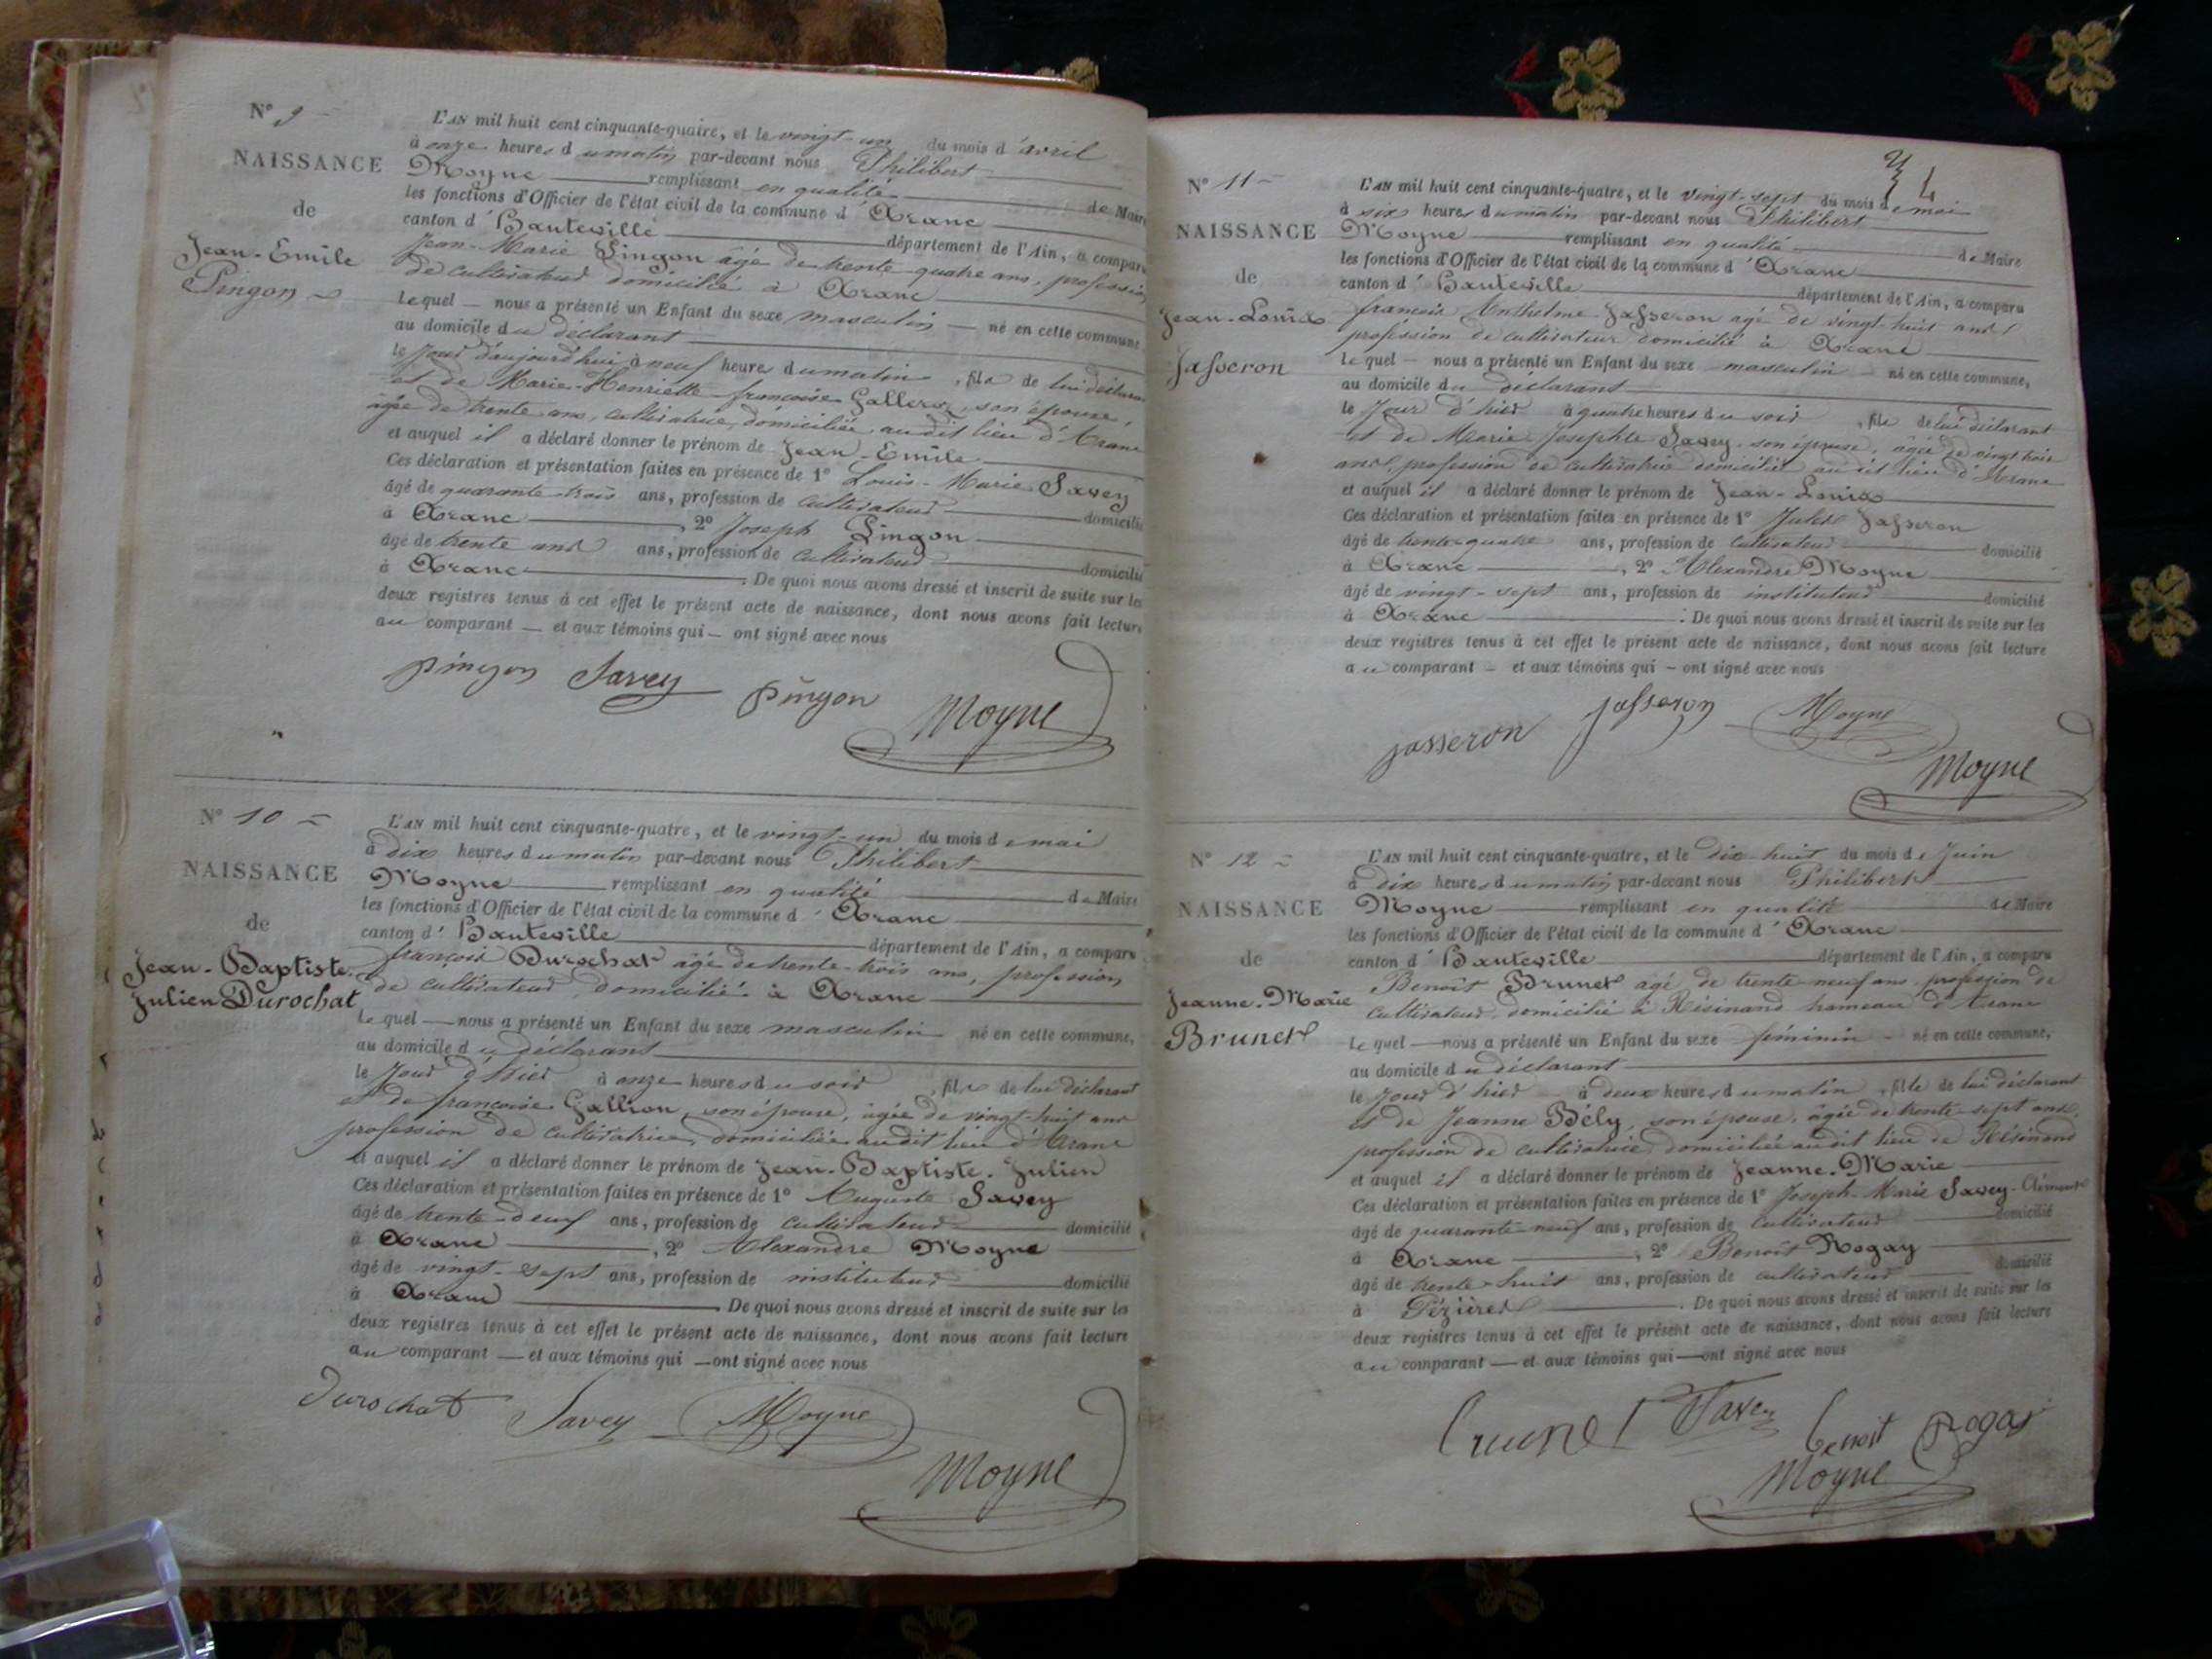 N° 9
NAISSANCE
de
Jean-Emile
Pingon
L'AN mil huit cent cinquante-quatre, et le vingt-un du mois d'avril
à onze heures du matin par-devant nous Philibert
Moyne remplissant en qualité de Maire
les fonctions d'Officier de l'état civil de la commune d'Aranc
canton d'Hauteville département de l'Ain, a comparu
Jean-Marie Pingon âgé de trente quatre ans, profession
de cultivateur domicilié à Aranc
Lequel — nous a présenté un Enfant du sexe masculin — né en cette commune,
au domicile du déclarant
le jour d'aujourd'hui à neuf heures du matin, fils de lui déclarant
et de Marie-Henriette françoise son épouse,
âgée de trente ans, cultivatrice, domiciliée audit lieu d'Aranc
et auquel il a déclaré donner le prénom de Jean-Emile
Ces déclaration et présentation faites en présence de 1° Louis-Marie Savey
âgé de quarante-trois ans, profession de cultivateur domicilié
à Aranc, 2° Joseph Pingon
âgé de trente ans, profession de cultivateur domicilié
à Aranc. De quoi nous avons dressé et inscrit de suite sur les
deux registres tenus à cet effet le présent acte de naissance, dont nous avons fait lecture
au comparant — et aux témoins qui — ont signé avec nous
pingon Savey pingon Moyne
N° 10
NAISSANCE
de
Jean-Baptiste-
Julien Durochat
L'AN mil huit cent cinquante-quatre, et le vingt-un du mois de mai
à dix heures du matin par-devant nous Philibert
Moyne remplissant en qualité de Maire
les fonctions d'Officier de l'état civil de la commune d'Aranc
canton d'Hauteville département de l'Ain, a comparu
françois Durochat âgé de trente-trois ans, profession
de cultivateur, domicilié à Aranc
Lequel — nous a présenté un Enfant du sexe masculin né en cette commune,
au domicile du déclarant
le jour d'hier à onze heures du soir, fils de lui déclarant
et de françoise Gallion, son épouse, âgée de vingt-huit ans
profession de cultivatrice, domiciliée audit lieu d'Aranc
et auquel il a déclaré donner le prénom de Jean-Baptiste-Julien
Ces déclaration et présentation faites en présence de 1° Auguste Savey
âgé de ans, profession de cultivateur domicilié
à Aranc, 2° Alexandre Moyne
âgé de vingt-sept ans, profession de instituteur domicilié
à Aranc. De quoi nous avons dressé et inscrit de suite sur les
deux registres tenus à cet effet le présent acte de naissance, dont nous avons fait lecture
au comparant — et aux témoins qui — ont signé avec nous
Durochat Savey Moyne
Moyne
N° 11
NAISSANCE
de
Jean-Louis
Jasseron
L'AN mil huit cent cinquante-quatre, et le vingt-sept du mois de mai
à six heures du matin par-devant nous Philibert
Moyne remplissant en qualité de Maire
les fonctions d'Officier de l'état civil de la commune d'Aranc
canton d'Hauteville département de l'Ain, a comparu
françois Anthelme Jasseron âgé de vingt-huit ans
profession de cultivateur domicilié à Aranc
Lequel — nous a présenté un Enfant du sexe masculin né en cette commune,
au domicile du déclarant
le jour d'hier à quatre heures du soir, fils de lui déclarant
et de Marie Josephte Savey son épouse, âgée de vingt trois
ans, profession de cultivatrice domiciliée audit lieu d'Aranc
et auquel il a déclaré donner le prénom de Jean-Louis
Ces déclaration et présentation faites en présence de 1° Jules Jasseron
âgé de trente-quatre ans, profession de cultivateur domicilié
à Aranc, 2° Alexandre Moyne
âgé de vingt-sept ans, profession de instituteur domicilié
à Aranc. De quoi nous avons dressé et inscrit de suite sur les
deux registres tenus à cet effet le présent acte de naissance, dont nous avons fait lecture
au comparant — et aux témoins qui — ont signé avec nous
jasseron jasseron Moyne
Moyne
N° 12
NAISSANCE
de
Jeanne-Marie
Brunet
L'AN mil huit cent cinquante-quatre, et le dix-huit du mois de Juin
à dix heures du matin par-devant nous Philibert
Moyne remplissant en qualité de Maire
les fonctions d'Officier de l'état civil de la commune d'Aranc
canton d'Hauteville département de l'Ain, a comparu
Benoît Brunet âgé de trente-neuf ans profession de
cultivateur, domicilié à Résinand hameau d'Aranc
Lequel — nous a présenté un Enfant du sexe féminin — né en cette commune,
au domicile du déclarant
le jour d'hier à deux heures du matin, fille de lui déclarant
et de Jeanne Bély, son épouse, âgée de trente-sept ans,
profession de cultivatrice domiciliée audit lieu de Résinand
et auquel il a déclaré donner le prénom de Jeanne-Marie
Ces déclaration et présentation faites en présence de 1° Joseph-Marie Savey-Clément
âgé de quarante-neuf ans, profession de cultivateur domicilié
à Aranc, 2° Benoît Rogay
âgé de trente-huit ans, profession de cultivateur domicilié
à Pézières. De quoi nous avons dressé et inscrit de suite sur les
deux registres tenus à cet effet le présent acte de naissance, dont nous avons fait lecture
au comparant — et aux témoins qui — ont signé avec nous
brunet Savey benoit rogay
Moyne